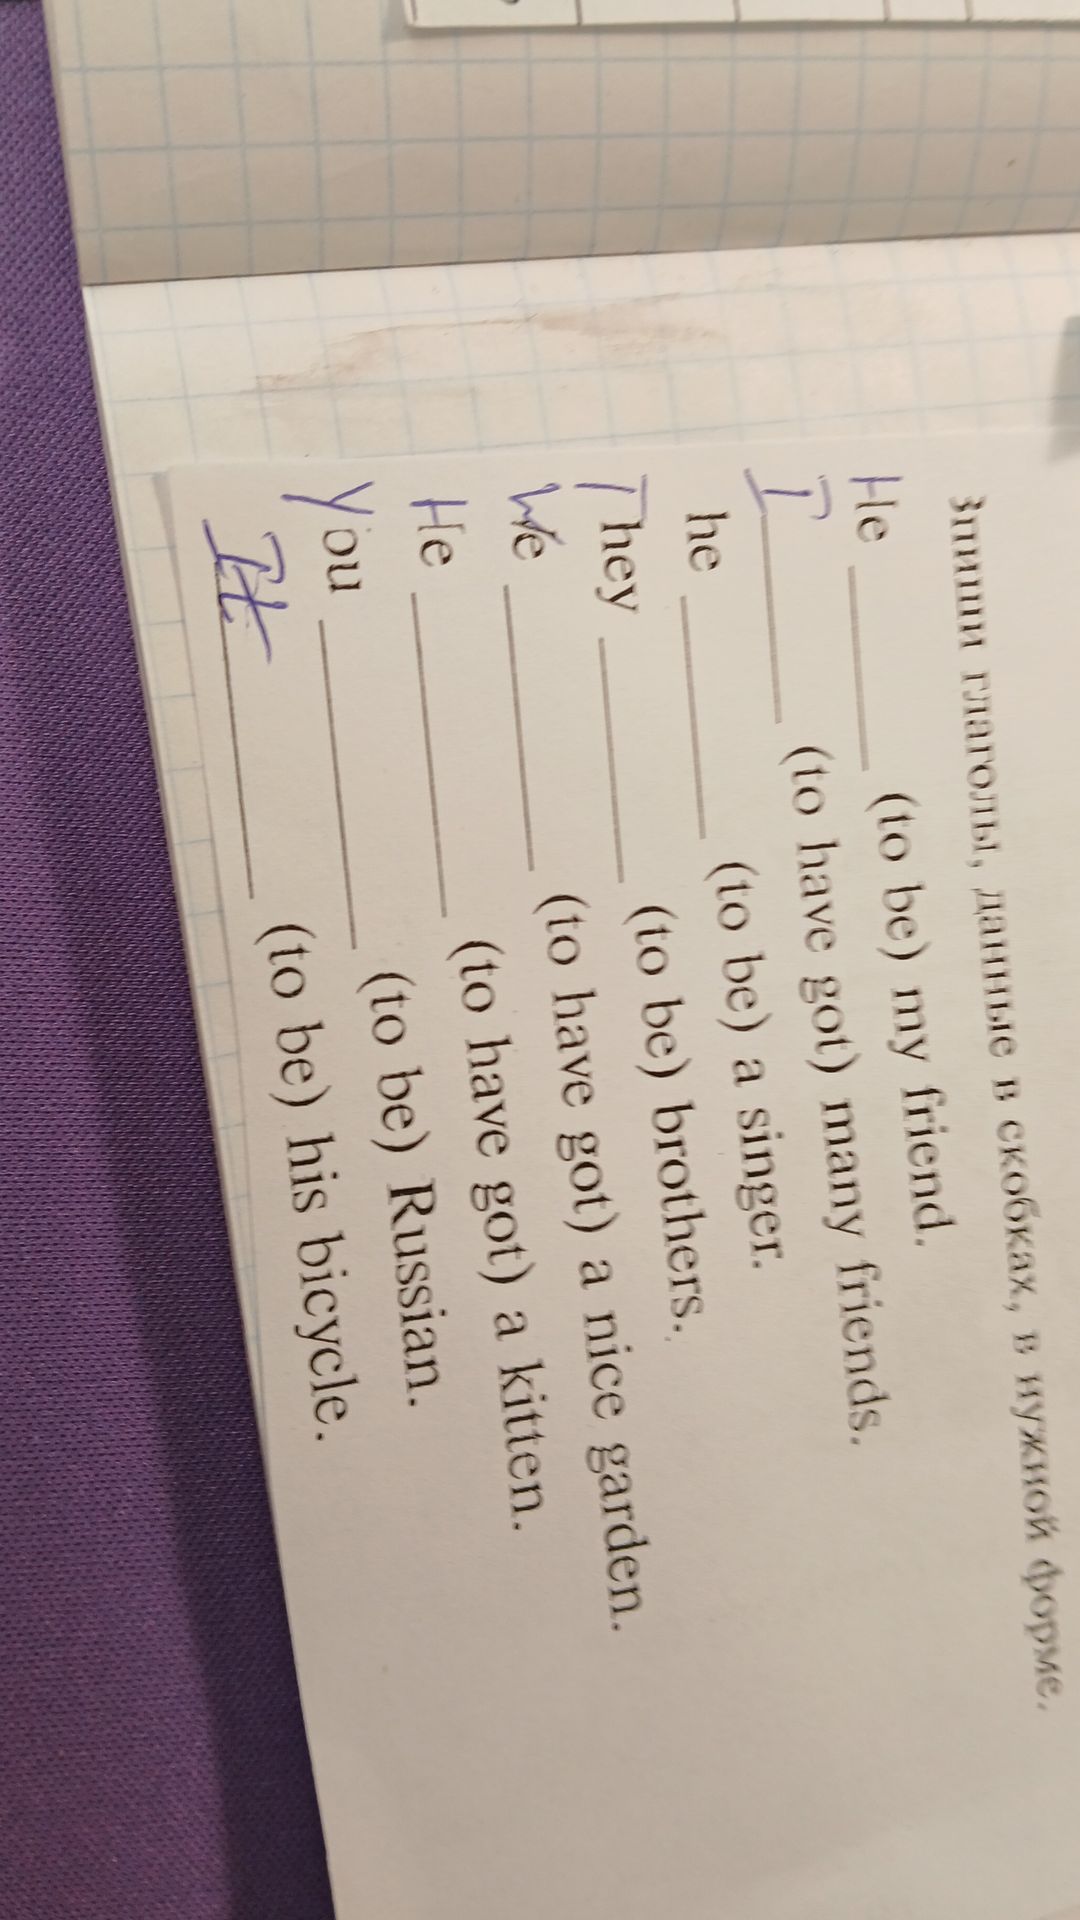 Впиши глаголы, данные в скобках, в нужной форме.
He ______ (to be) my friend.
I ______ (to have got) many friends.
he ______ (to be) a singer.
They ______ (to be) brothers.
We ______ (to have got) a nice garden.
He ______ (to have got) a kitten.
You ______ (to be) Russian.
It ______ (to be) his bicycle.